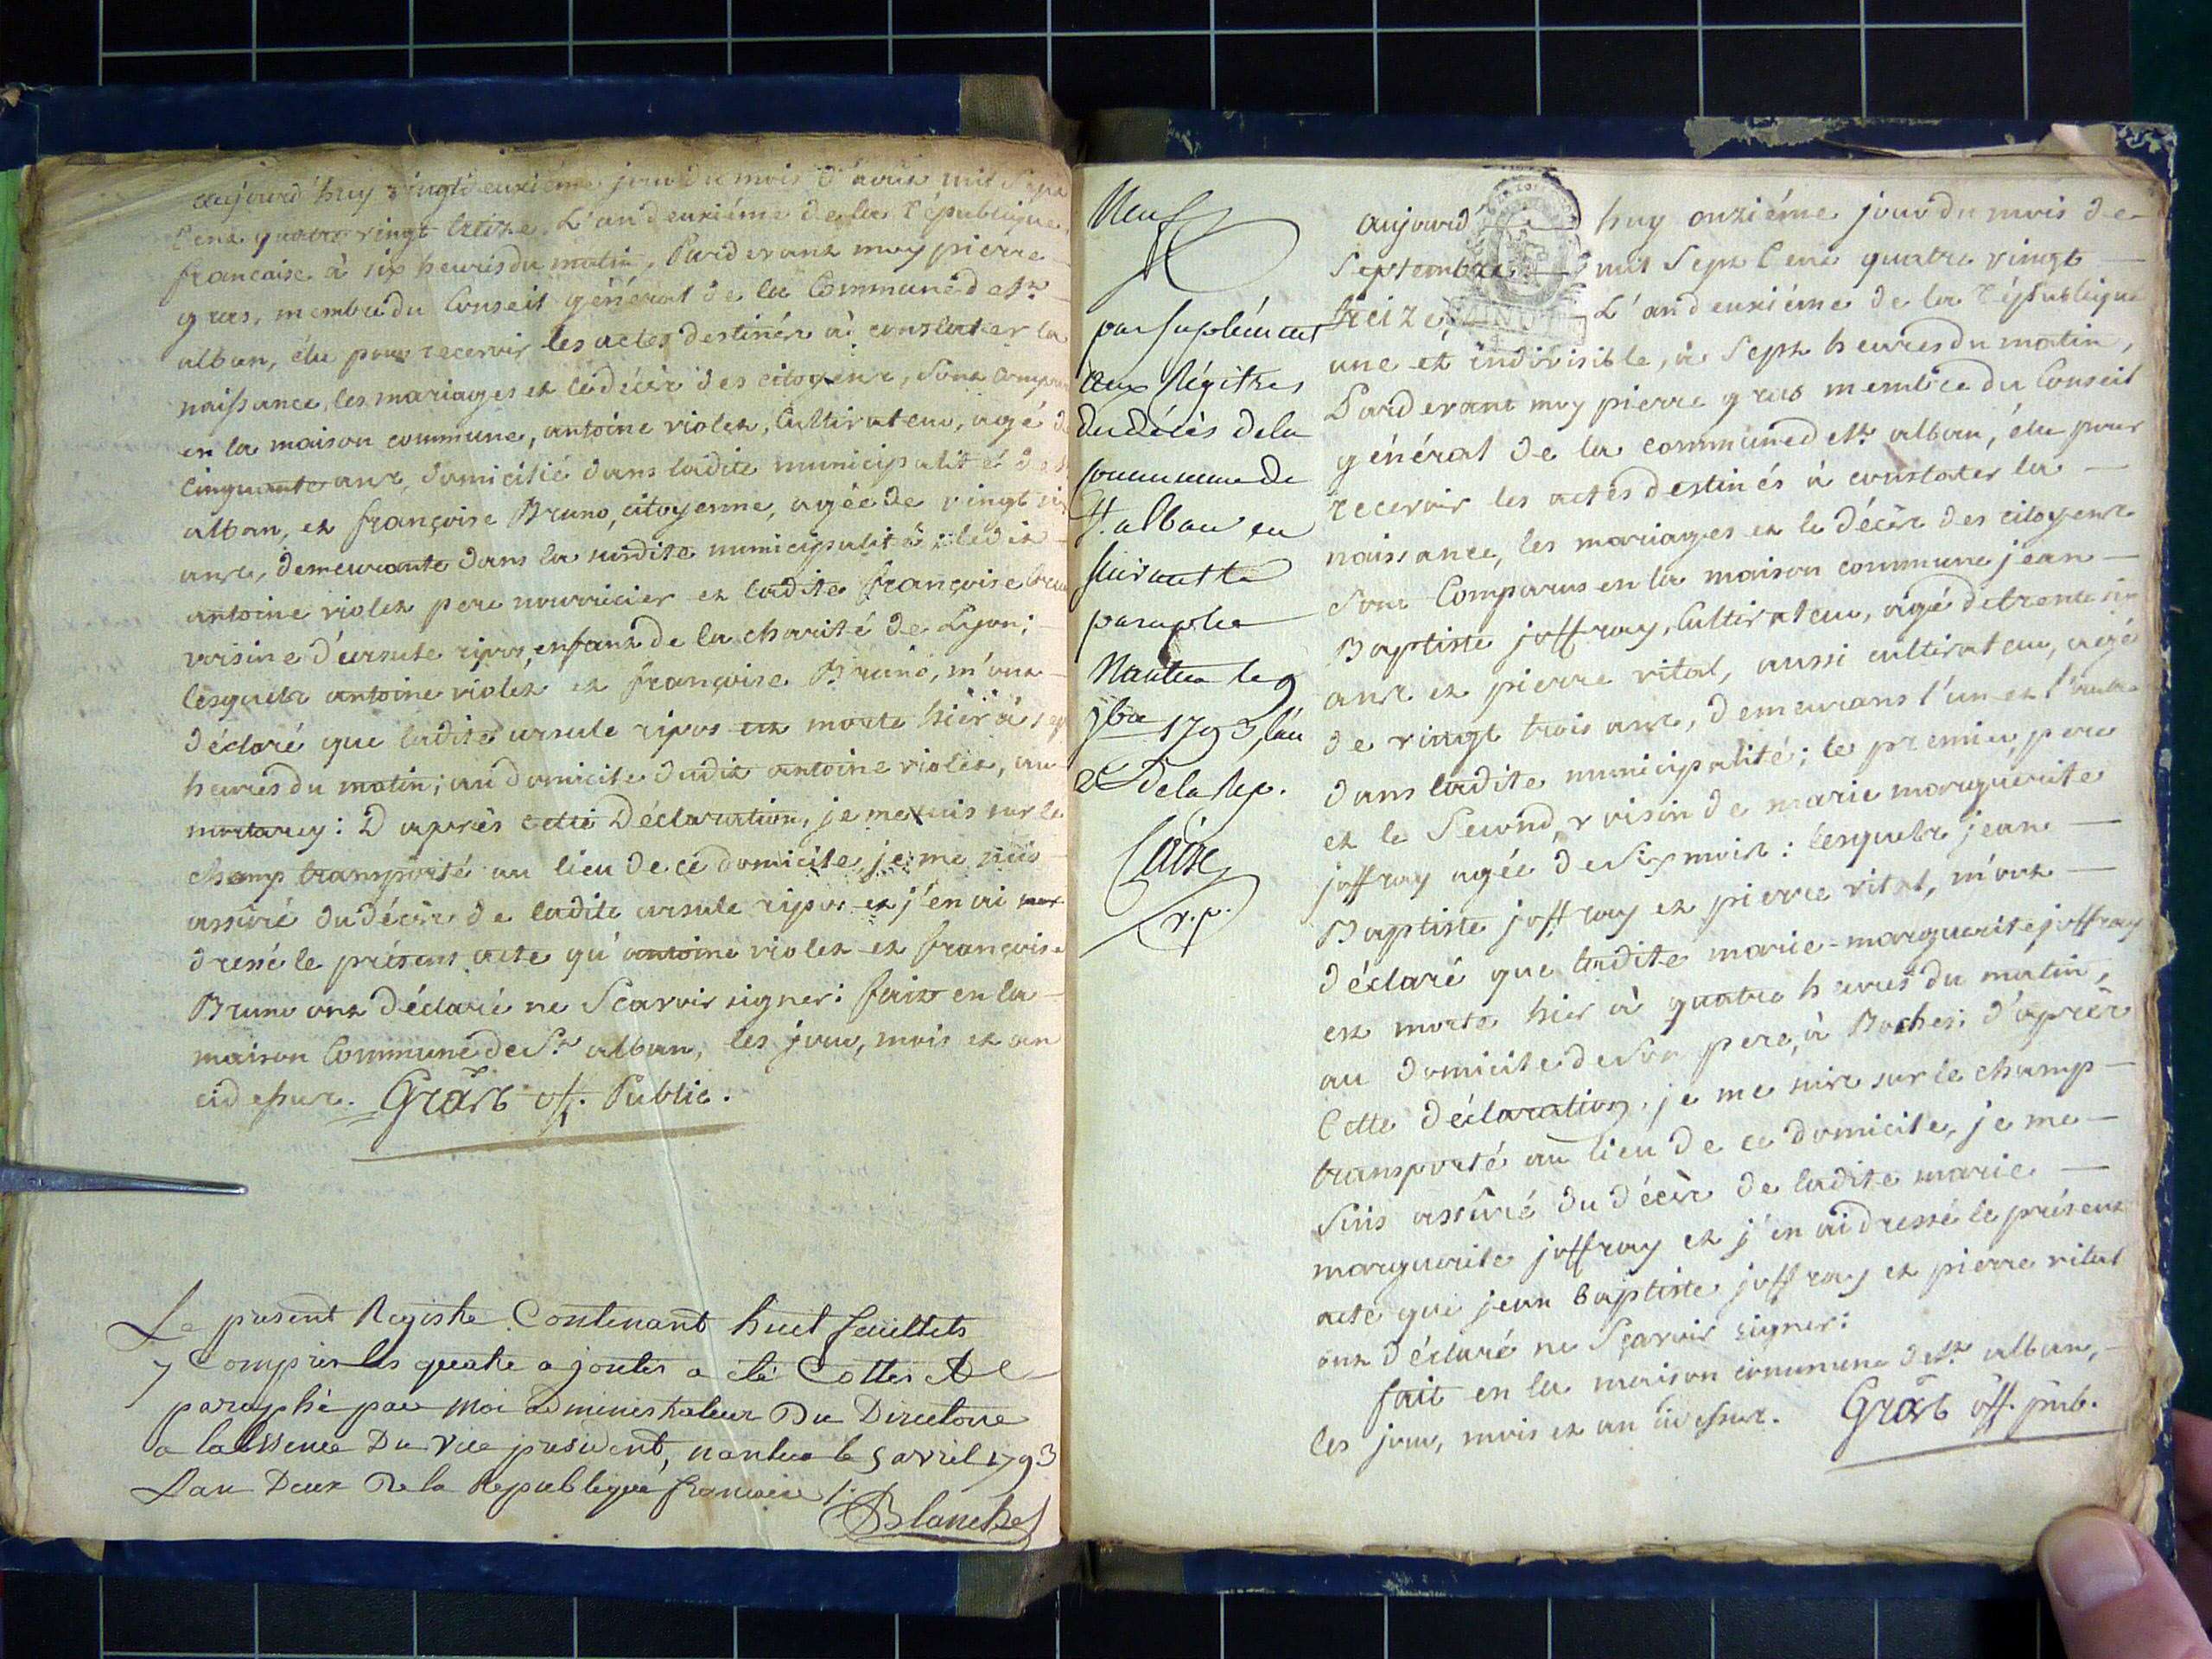 aujourd'huy vingtdeuxiéme jour du mois d'aout mil Sept
Cent quatre vingt treize. L'an deuxiéme de la République
francaise à six heures du matin. Pardevant moy pierre
gras, membre du Conseil général de la Commune de St
alban, élu pour recevoir les actes destinés à constater la
naissance, les mariages et le décès des citoyens, Sont compar
en la maison commune, antoine violet, Cultivateur, agé d
Cinquante ans, domicilié dans ladite municipalité de St
alban, et françoise Bruno, citoyenne, agée de vingt
ans, demeurante dans la susdite municipalité: ledit
antoine violet pere nourricier et ladite françoise bru
voisine d'ursule ripos, enfant de la charité de Lyon;
lesquels antoine violet et françoise Bruno, m'ont
déclaré que ladite ursule ripos est morte hier à sept
heures du matin; au domicile dudit antoine violet, au
: D'après cette Déclaration, je me suis sur le
champ transporté au lieu de ce domicile, je me suis
assûré du décès de ladite ursule ripos et j'en ai
dressé le présent acte qu'antoine violet et françoise
Bruno ont déclaré ne Scavoir signer: fait en la
maison Commune de St alban, les jour, mois et an
cidessus. Gras off. Public.
Le present Registre Contenant huit feuillets
y Compris les quatre ajoutés a été Cottés et
paraphé par Moi administrateur Du Directoire
a labsence Du vice president, nantua le 5 avril 1793
Lan Deux De la Republique francaise
Blanchet
Neuf
par suplément
aux Régitres
du décès de la
commune de
St. alban en
suivant le
paraphe
Nantua le 9
7bre 1793, l'an
2e de la Rep.
v.p.
aujourd'huy onziéme jour du mois de
Septembre mil Sept Cent quatre vingt
treize, L'an deuxiéme de la République
une et indivisible, à Sept heures du matin,
Pardevant moy pierre gras membre du Conseil
général de la commune de St alban, élu pour
recevoir les actes destinés à constater la
naissance, les mariages et le décès des citoyens
Sont Comparus en la maison commune jean
Baptiste joffray, Cultivateur, agé de trente six
ans et pierre vital, aussi cultivateur, agé
de vingt trois ans, demeurans l'un et l'autre
dans ladite municipalité; le premier, pere
et le Second, voisin de marie marguerite
joffray agée de Six mois: lesquels jean
Baptiste joffray et pierre vital, m'ont
déclaré que ladite marie-marguerite joffray
est morte hier à quatre heures du matin,
au domicile de son pere, à Boches: d'après
Cette déclaration, je me suis sur le champ
transporté au lieu de ce domicile, je me
Suis assûré du décès de ladite marie
marguerite joffray et j'en ai dressé le présent
acte que jean baptiste joffray et pierre vital
ont déclaré ne Sçavoir signer:
fait en la maison commune de St alban,
les jour, mois et an cidessus. Gras off. pub.